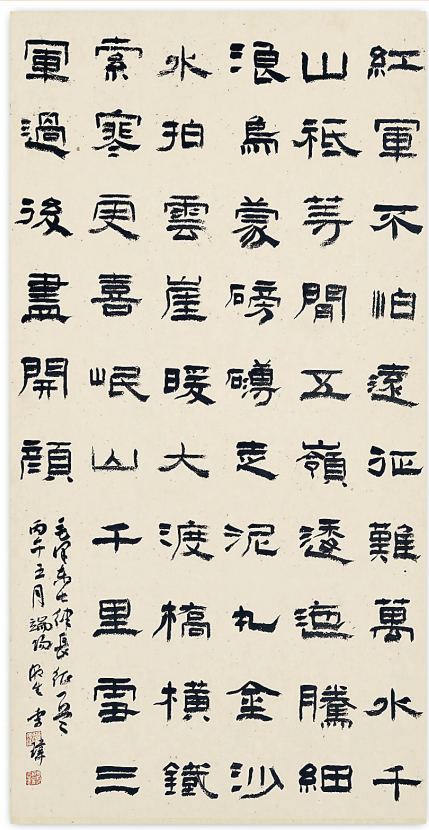 紅軍不怕遠征難萬水千
山祗等閒五嶺逶迤騰細
浪烏蒙磅礴走泥丸金沙
水拍雲崖暖大渡橋橫鐵
索寒更喜岷山千里雪三
軍過後盡開顏
毛澤東七律長征一首
丙午五月端陽